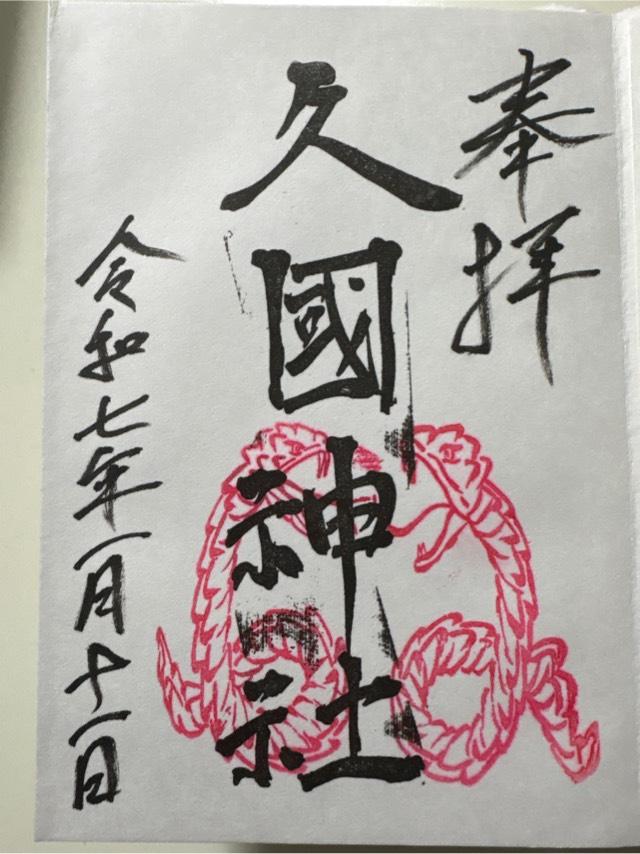 奉拝
久國神社
令和七年一月十一日